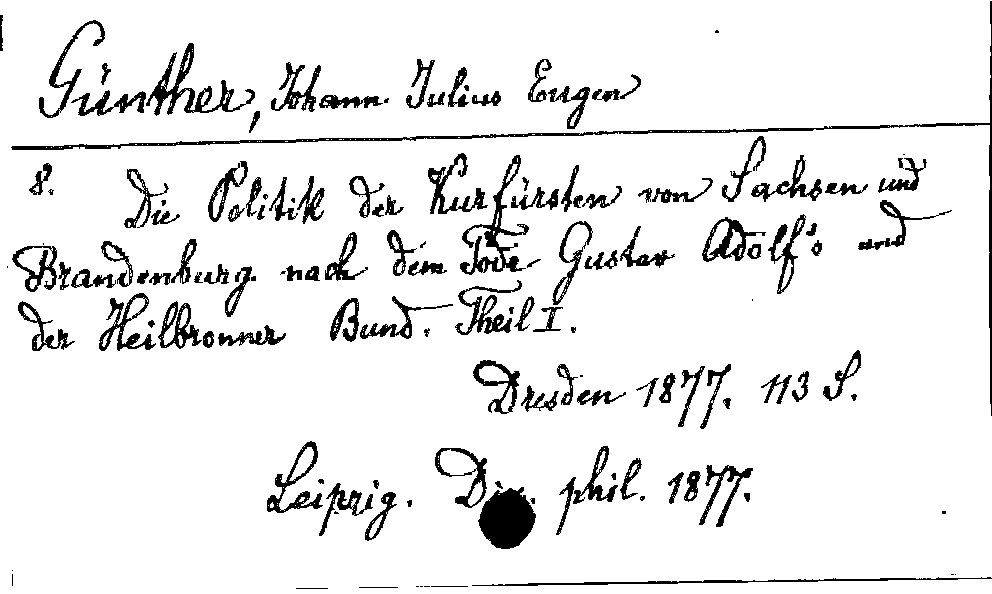 Günther, Johann Julius Eugen
8. Die Politik der Kurfürsten von Sachsen und
Brandenburg nach dem Tode Gustav Adolf's und
der Heilbronner Bund. Theil I.
Dresden 1877. 113 S.
Leipzig. Diss. phil. 1877.